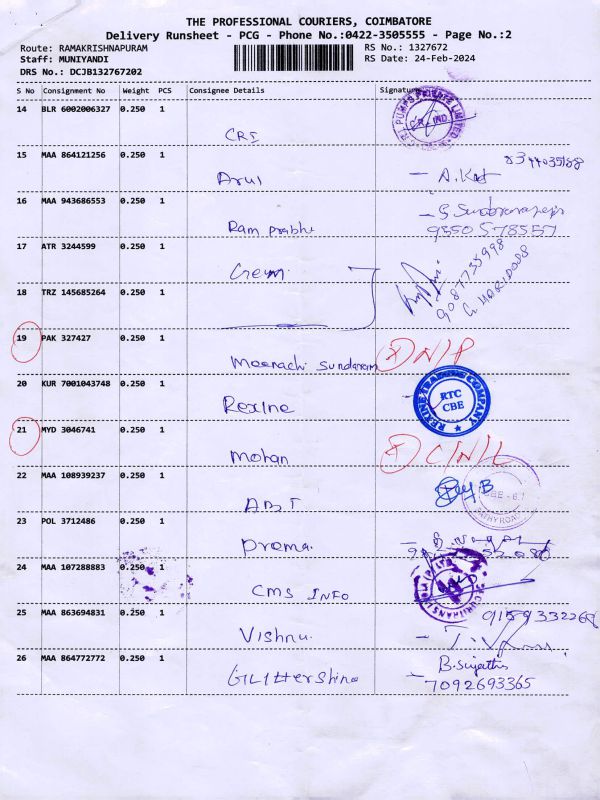 THE PROFESSIONAL COURIERS, COIMBATORE
Delivery Runsheet - PCG - Phone No.:0422-3505555 - Page No.:2
Route: RAMAKRISHNAPURAM
RS No.: 1327672
Staff: MUNIYANDI
RS Date: 24-Feb-2024
DRS No.: DCJB132767202
S No Consignment No Weight PCS Consignee Details Signature
14 BLR 6002006327 0.250 1
CRI
PUMPS PRIVATE LIMITED
15 MAA 864121256 0.250 1
Arul
A.Kat
16 MAA 943686553 0.250 1
Ram prabhu
9350578557
17 ATR 3244599 0.250 1
Gem
9087735998
G HARIDOSS
18 TRZ 145685264 0.250 1
19 PAK 327427 0.250 1
Meenachi Sundaram
N/P
20 KUR 7001043748 0.250 1
Rexine
REXINE TRADING COMPANY
RTC
CBE
21 MYD 3046741 0.250 1
Mohan
C/N/L
22 MAA 108939237 0.250 1
ABT
23 POL 3712486 0.250 1
Prema
24 MAA 107288883 0.250 1
CMS INFO
25 MAA 863694831 0.250 1
Vishnu
9159332268
26 MAA 864772772 0.250 1
Glittershine
B.Sujatha
7092693365